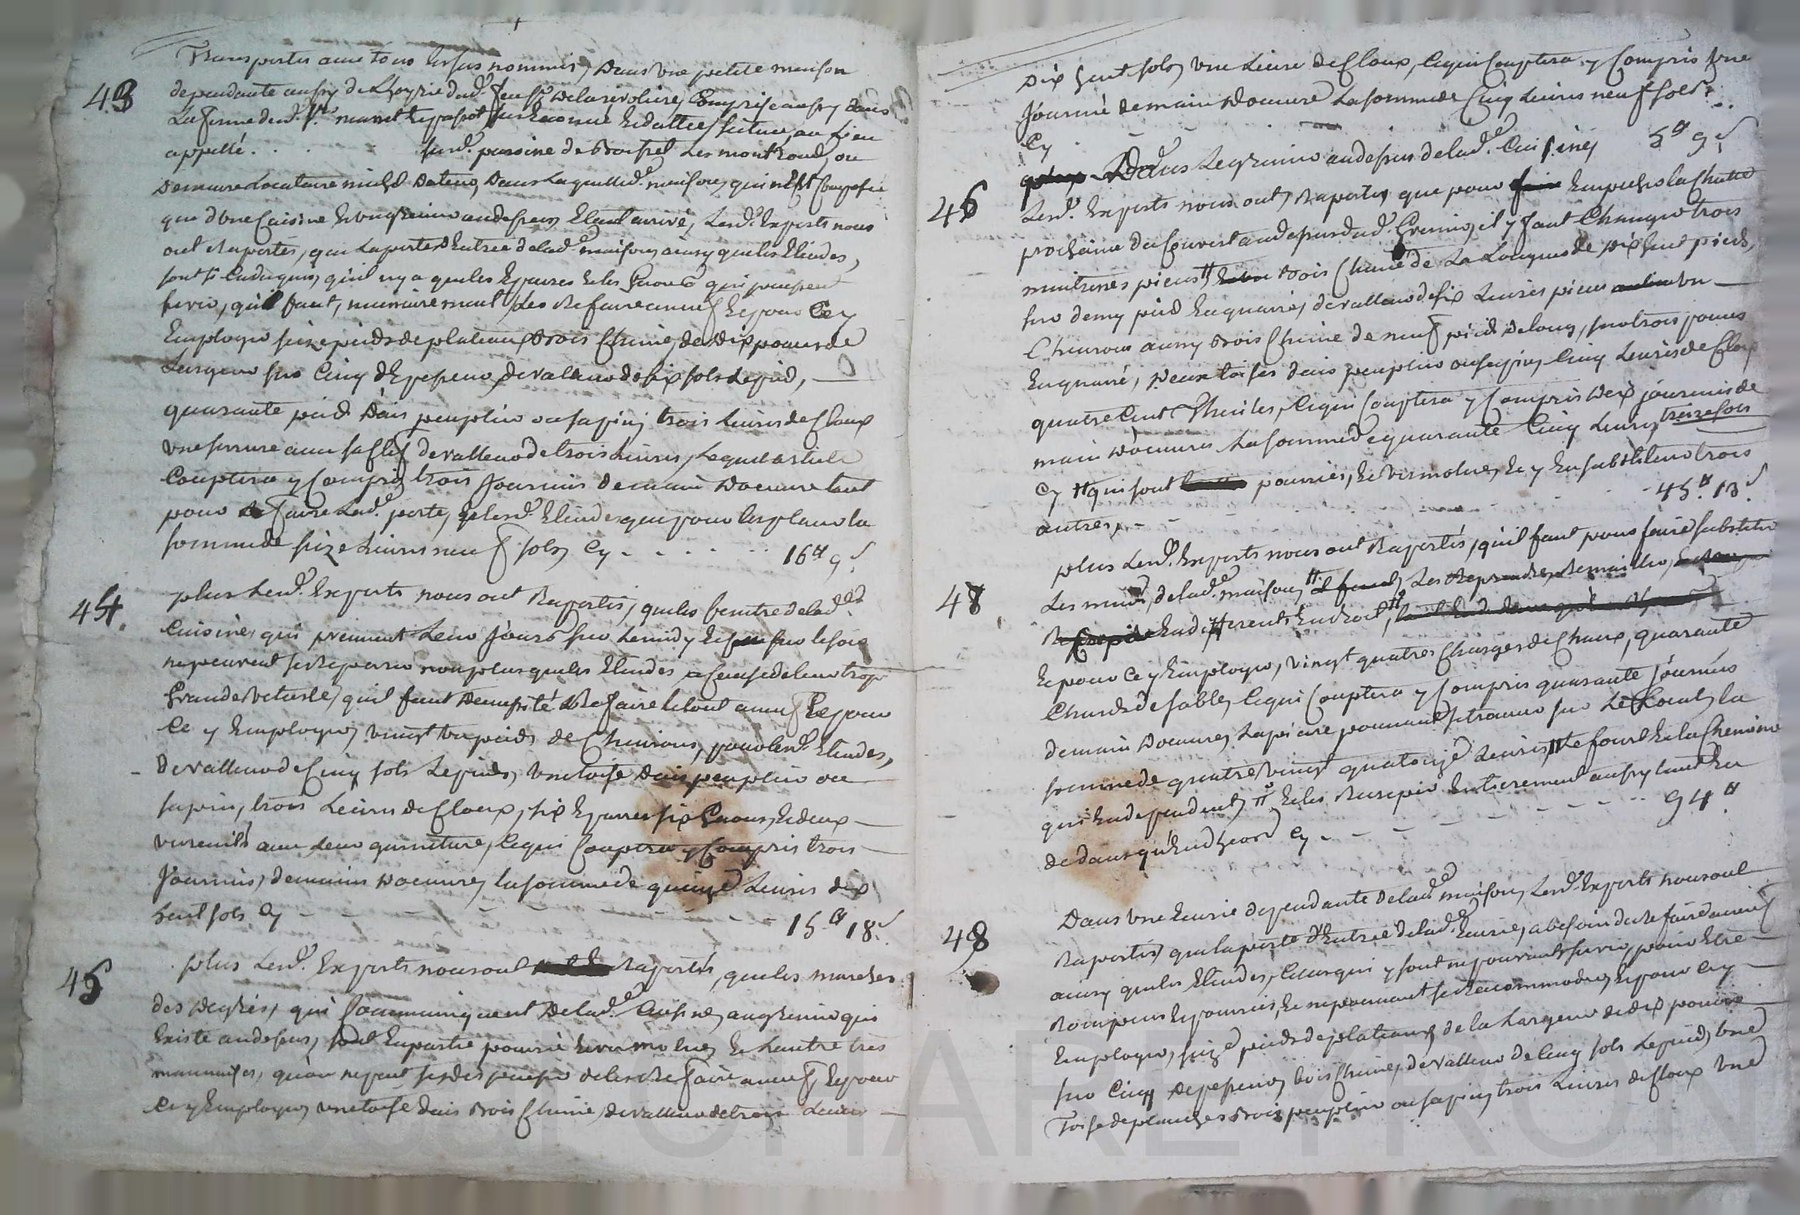 Transportés avec tous les sus nommés, Dans une petite maison
43
dependante aussy de L'hoyrie dud. feu Sr. Delarivoliere, Comprise aussy dans
La ferme dud. Sr. au Lieu
appellé . . . parroisse de ou
Demeure Locataire Dans Laquelle d. maison, qui n'est Composée
que d'une Cuisine & un grenier au dessus, Etant arrivés, Lesd. Experts nous
ont Raportés, que La porte d'Entrée de lad. maison, ainsy que les Elindes,
sont si Caduques, qu'il n'y a que les Eparres & les Gonds qui puissent
servir, qu'il faut, necessairement Les Refaire a neuf Et pour Ce y
Employer seize pieds de plateaux Bois Chaine, de Dix pouces de
Largeur sur Cinq d'Epesseur, de valleur de six sols Le pied,
quarante pieds D'ais peuplier ou sapin, trois Livres de Cloux
une serrure avec sa Clef de valleur de trois Livres, Lequel article
Couptera y Compris trois Journées de main D'oeuvre tant
pour Faire Lad. porte, & lesd. Elindes que pour les placer la
somme de seize Livres neuf sols, Cy - - - - 16ll 9s.
44. plus Lesd. Experts nous ont Raportés, que les fenetres de lad.
Cuisine, qui prennent Leur Jours sur Le midy & sur le soir
ne peuvent se Reparer non plus que les Elindes a Cause de leur trop
Grande Vetusté, qu'il faut De necessité Refaire le tout a neuf Et pour
Ce y Employer, vingt un pieds de Chevrons, pour lesd. Elindes,
De valleur de Cinq sols Le pied, une toise D'ais peuplier ou
sapin, trois Livres de Cloux, six Eparres six Gonds, & deux
avec Leur garniture, Ce qui Couptera y Compris trois
Journées, de main D'oeuvre, la somme de quinze Livres dix
huit sols Cy - - - - - 15ll 18s.
45 plus Lesd. Experts nous ont Raportés, que les marches
des degrés, qui Communiquent De lad. Cuisine, au grenier qui
Existe au dessus, sont En partie pourrie & vermolue, & L'autre tres
mauvaises, qu'on ne peut se dispenser de les Refaire a neuf, Et pour
Ce y Employer, une toise d'ais Bois Chaine, de valleur de trois Livres
Dix huit sols, une Livre de Cloux, Ce qui Couptera, y Compris une
Journée de main D'oeuvre La somme de Cinq Livres neuf sols.
Cy - - - 5ll 9s
46 Dans Le grenier au dessus de lad. Cuisine,
Lesd. Experts nous ont Raportés que pour Empecher la Chutte
prochaine du Couvert au dessus dud. Grenier, il y faut Changer trois
pieces # Bois Chaine de La Longueur de Dix huit pieds,
sur demy pied En quarré, de valleur de six Livres piece
Chevrons aussy Bois Chaine de neuf pieds De long, sur trois pouces
En quarré, Deux toises d'ais peuplier ou sapin, Cinq Livres de Cloux
quatre Cent Thuiles, Ce qui Couptera y Compris Dix journées de
main D'oeuvres La somme de quarante Cinq Livres treize sols
Cy # qui sont pourries, & vermolues, & y En substituer trois
autres, - - - 45ll 13s
47. plus Lesd. Experts nous ont Raportés, qu'il faut pour faire subsister
Les murs, de lad. maison, # Les Reprendre, Remailler,
En differents Endroit, #
Et pour Ce y Employer, vingt quatre Charges de Chaux, quarante
Chards de sable, Ce qui Couptera y Compris quarante Journées
de main D'oeuvres, La pierre pouvant se trouver sur Le Local, la
somme de quatre vingt quatorze Livres, # Le four & la Cheminée
qui En dependent, # & les Recrepir Entierement aussy tant En
dedans qu'En dehors Cy - - - - 94ll.
48 Dans une Ecurie dependante de lad. maison, Lesd. Experts nous ont
Raportés, que la porte d'Entrée de lad. Ecurie, a besoin d'etre faire a neuf
ainsy que les Elindes, Ceux qui y sont ne pouvant servir, pour Etre
Rompeus & pourris, & ne pouvant se Racommoder, Et pour Ce y
Employer, seize pieds de plateaux, de la Largeur de dix pouces
sur Cinq D'epesseur, bois Chaine, de valleur de Cinq sols Le pied, une
Toise de planches Bois peuplier ou sapin, trois Livres de Cloux une